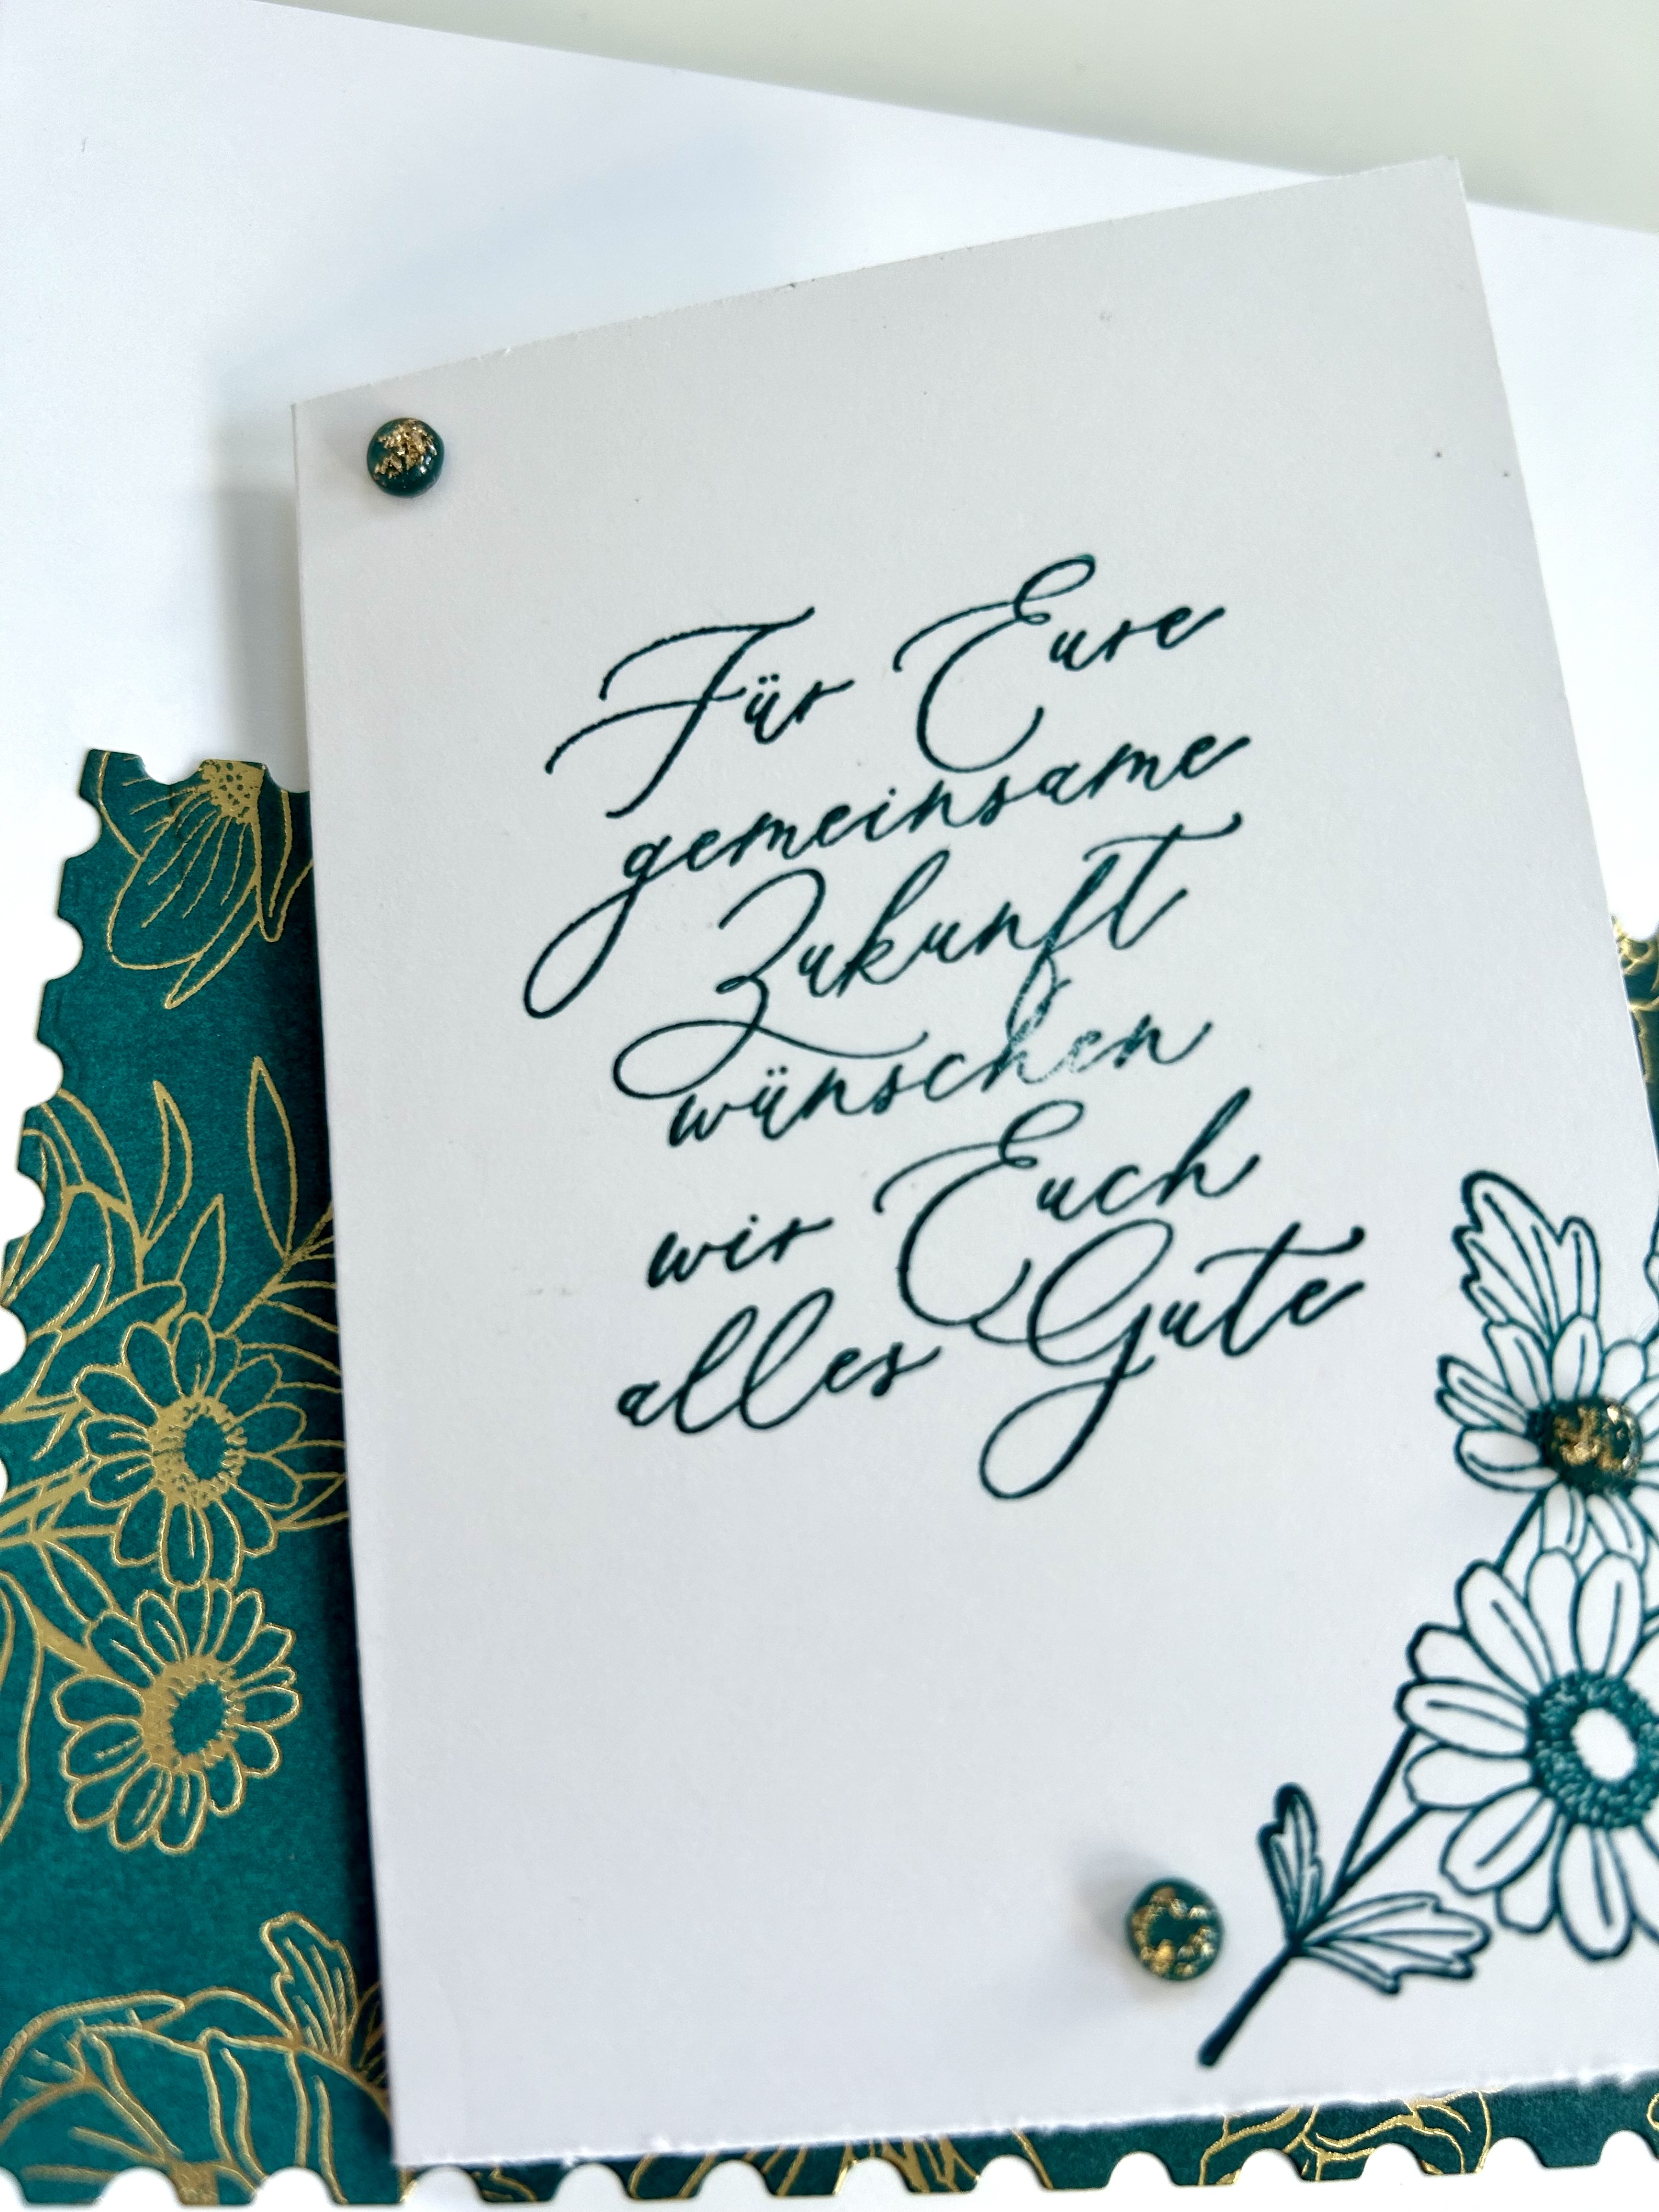 Für Eure
gemeinsame
Zukunft
wünschen
wir Euch
alles Gute